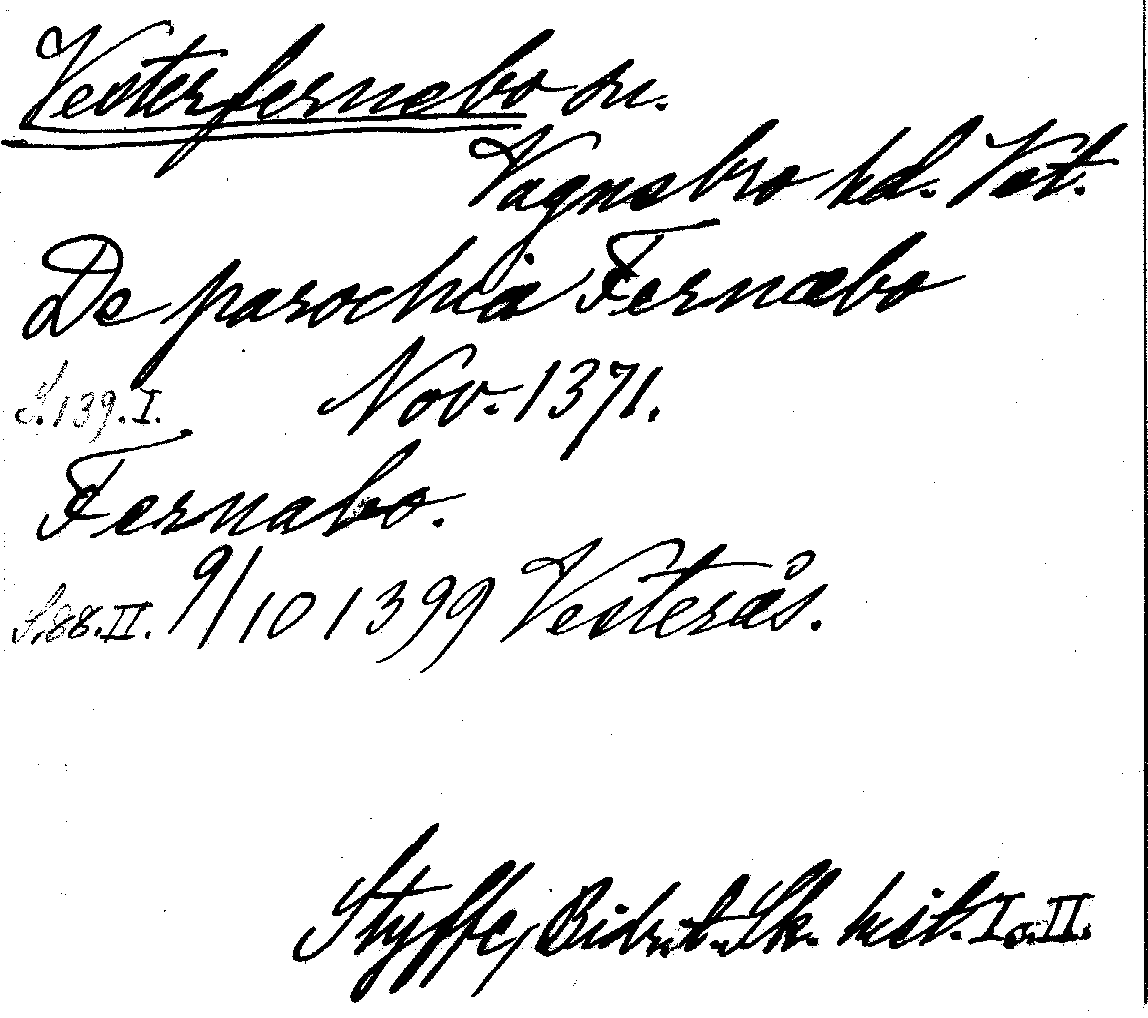 Vesterfernebo sn.
Vagnsbro hd. Vst.
De parochia Fernæbo
S. 139. I. Nov. 1371.
Fernabo.
S. 88. II. 9/10 1399 Vesterås.
Styffe, Bidr. t. Sk. hist. I o. II.